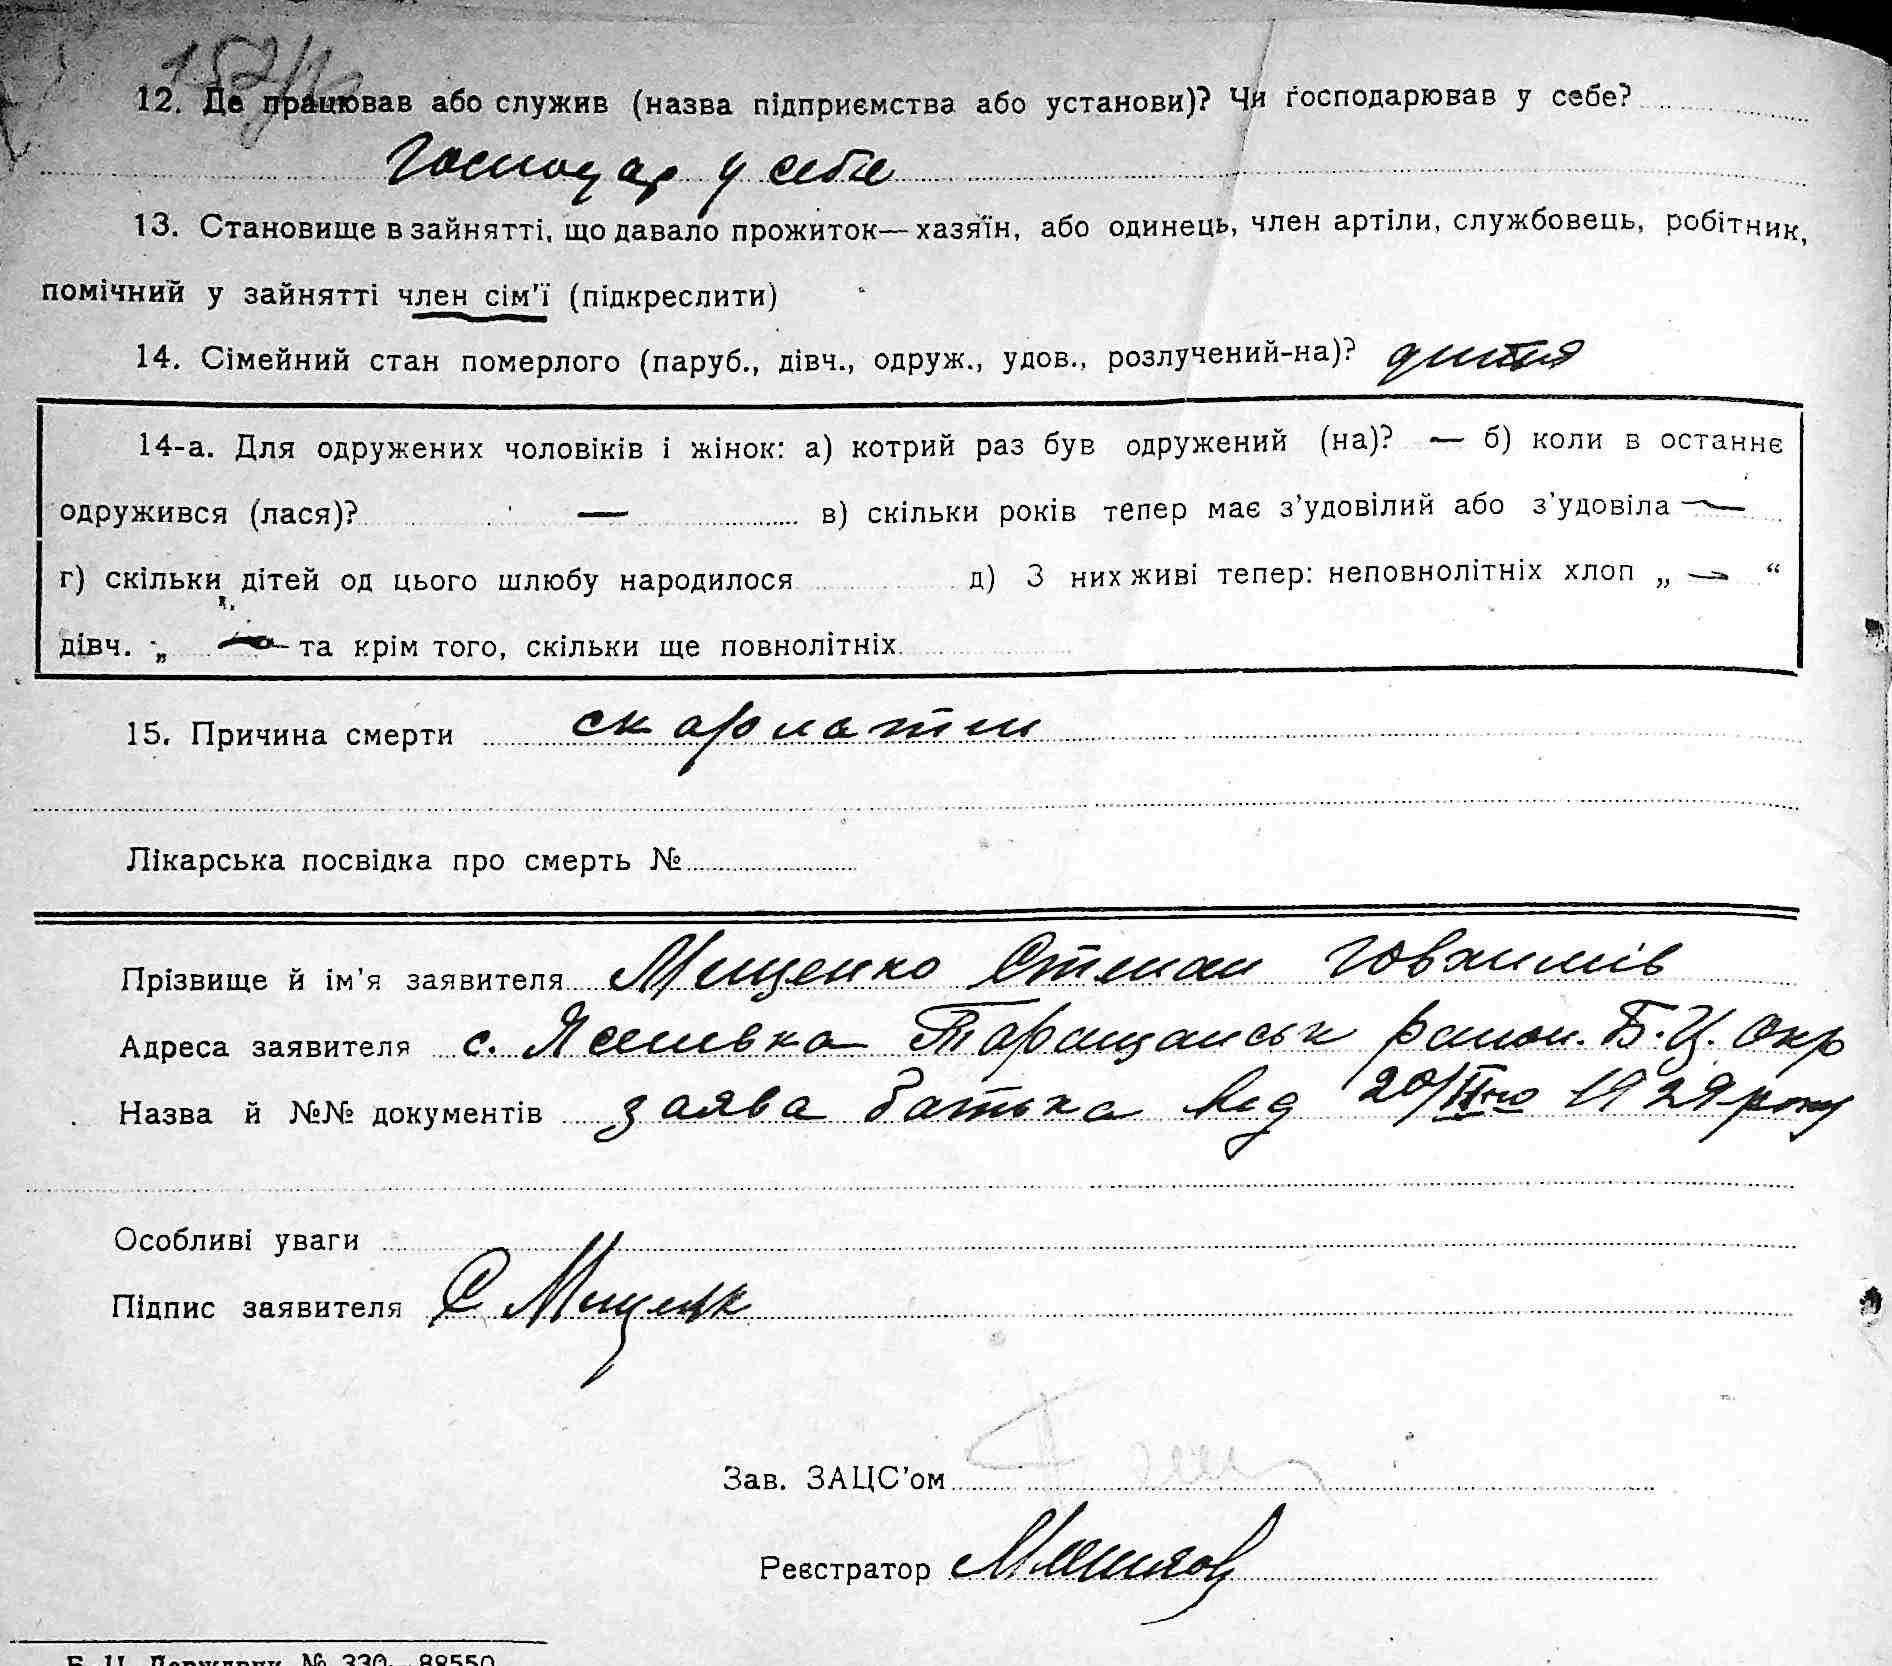 12. Де працював або служив (назва підприємства або установи)? Чи господарював у себе?
Господар у себе
13. Становище в зайнятті, що давало прожиток — хазяїн, або одинець, член артіли, службовець, робітник,
помічний у зайнятті член сім'ї (підкреслити)
14. Сімейний стан померлого (паруб., дівч., одруж., удов., розлучений-на)? дитя
14-а. Для одружених чоловіків і жінок: а) котрий раз був одружений (на)? — б) коли в останнє
одружився (лася)? — в) скільки років тепер має з'удовілий або з'удовіла —
г) скільки дітей од цього шлюбу народилося д) З них живі тепер: неповнолітніх хлоп „ — “
дівч. „ — та крім того, скільки ще повнолітніх
15. Причина смерти скарлатин
Лікарська посвідка про смерть №
Прізвище й ім'я заявителя Мищенко Степан
Адреса заявителя с. Яселівка Таращанськ район. Б.Ц. Окр
Назва й №№ документів заява батька від 20/ 1929 року
Особливі уваги
Підпис заявителя С Мищенк
Зав. ЗАЦС'ом
Реєстратор
Б. Ц. Держдрук № 330—88550